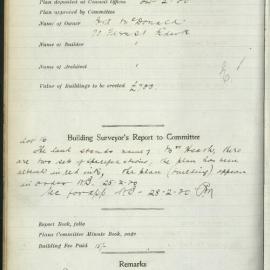 Plan deposited at Council Offices
Plan approved by Committee
Name of Owner McDonald
Name of Builder
Name of Architect
Value of Buildings to be erected £700
Building Surveyor's Report to Committee
The land stands name of Mrs Heath, there
are two set of specifications, the plan has been
altered in red ink, the plan, (building) appears
in order 25-2-20
for app 28-2-20
Report Book, folio
Plans Committee Minute Book, page
Building Fee Paid 15/-
Remarks